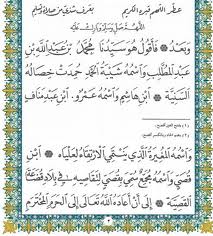 عَطِّرِ اللّٰهُمَّ قَبْرَهُ الْكَرِيمَ بِعَرْفٍ شَذِيٍّ مِنْ صَلَاةٍ وَتَسْلِيمٍ
اَللّٰهُمَّ صَلِّ وَسَلِّمْ وَبَارِكْ عَلَيْهِ
وَبَعْدُ فَأَقُولُ هُوَ سَيِّدُنَا مُحَمَّدُ بْنُ عَبْدِ اللّٰهِ بْنِ
عَبْدِ الْمُطَّلِبِ وَاسْمُهُ شَيْبَةُ الْحَمْدِ حُمِدَتْ خِصَالُهُ
السَّنِيَّةُ ابْنِ هَاشِمٍ وَاسْمُهُ عَمْرُو ابْنِ عَبْدِ مَنَافٍ
وَاسْمُهُ الْمُغِيرَةُ الَّذِي يَنْتَمِي الْاِرْتِقَاءُ لِعُلْيَاهُ ابْنِ
قُصَيٍّ وَاسْمُهُ مُجَمِّعٌ سُمِّيَ بِقُصَيٍّ لِتَقَاصِيهِ فِي بِلَادِ قُضَاعَةَ
الْقَصِيَّةِ إِلَى أَنْ أَعَادَهُ اللّٰهُ تَعَالَى إِلَى الْحَرَمِ الْمُحْتَرَمِ